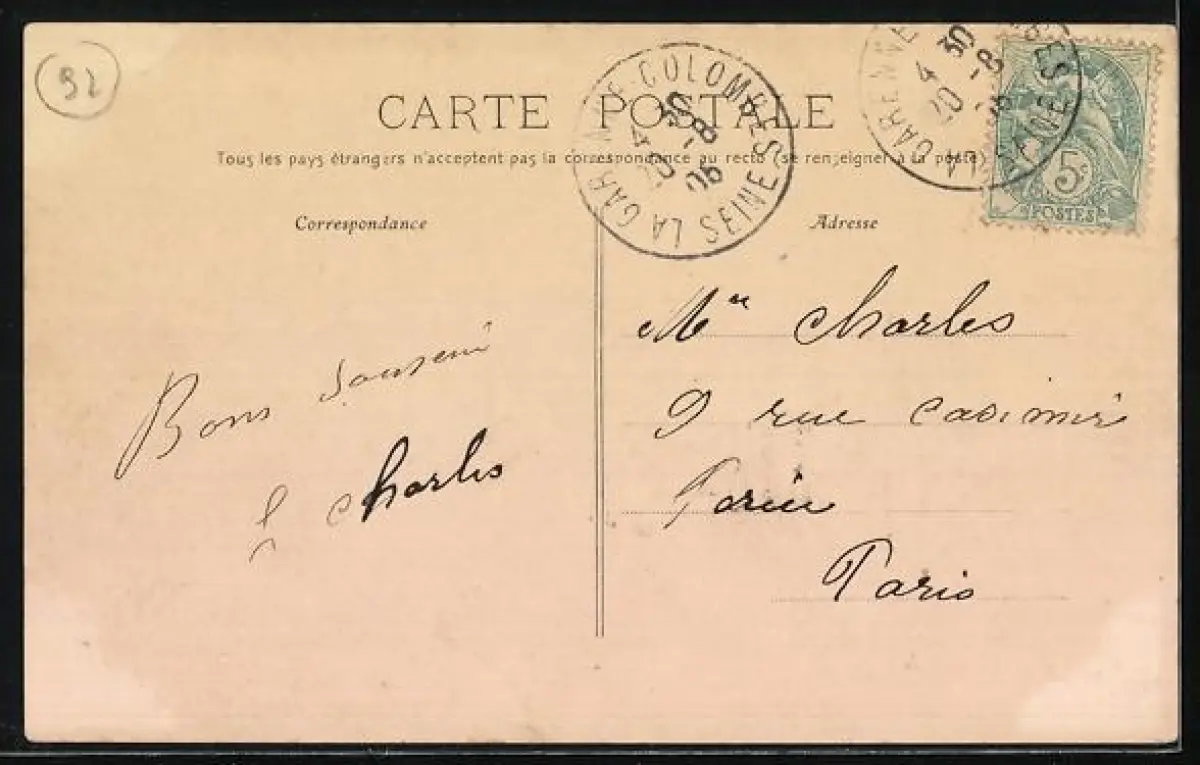 92
CARTE POSTALE
Tous les pays étrangers n'acceptent pas la correspondance au recto (se renseigner à la poste)
Correspondance
Bons souvenir
Charles
Adresse
Mr Charles
9 rue Casimir
Paris
LA GARENNE-COLOMBES SEINE
4 30
20 -8
06
LA GARENNE
4 30
20 -8
SEINE
5c
POSTES